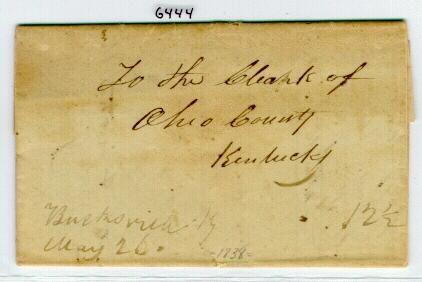 6444
To the Clerk of
Ohio County
Kentucky
Bucksville Ky
May 26
12½
-1838-